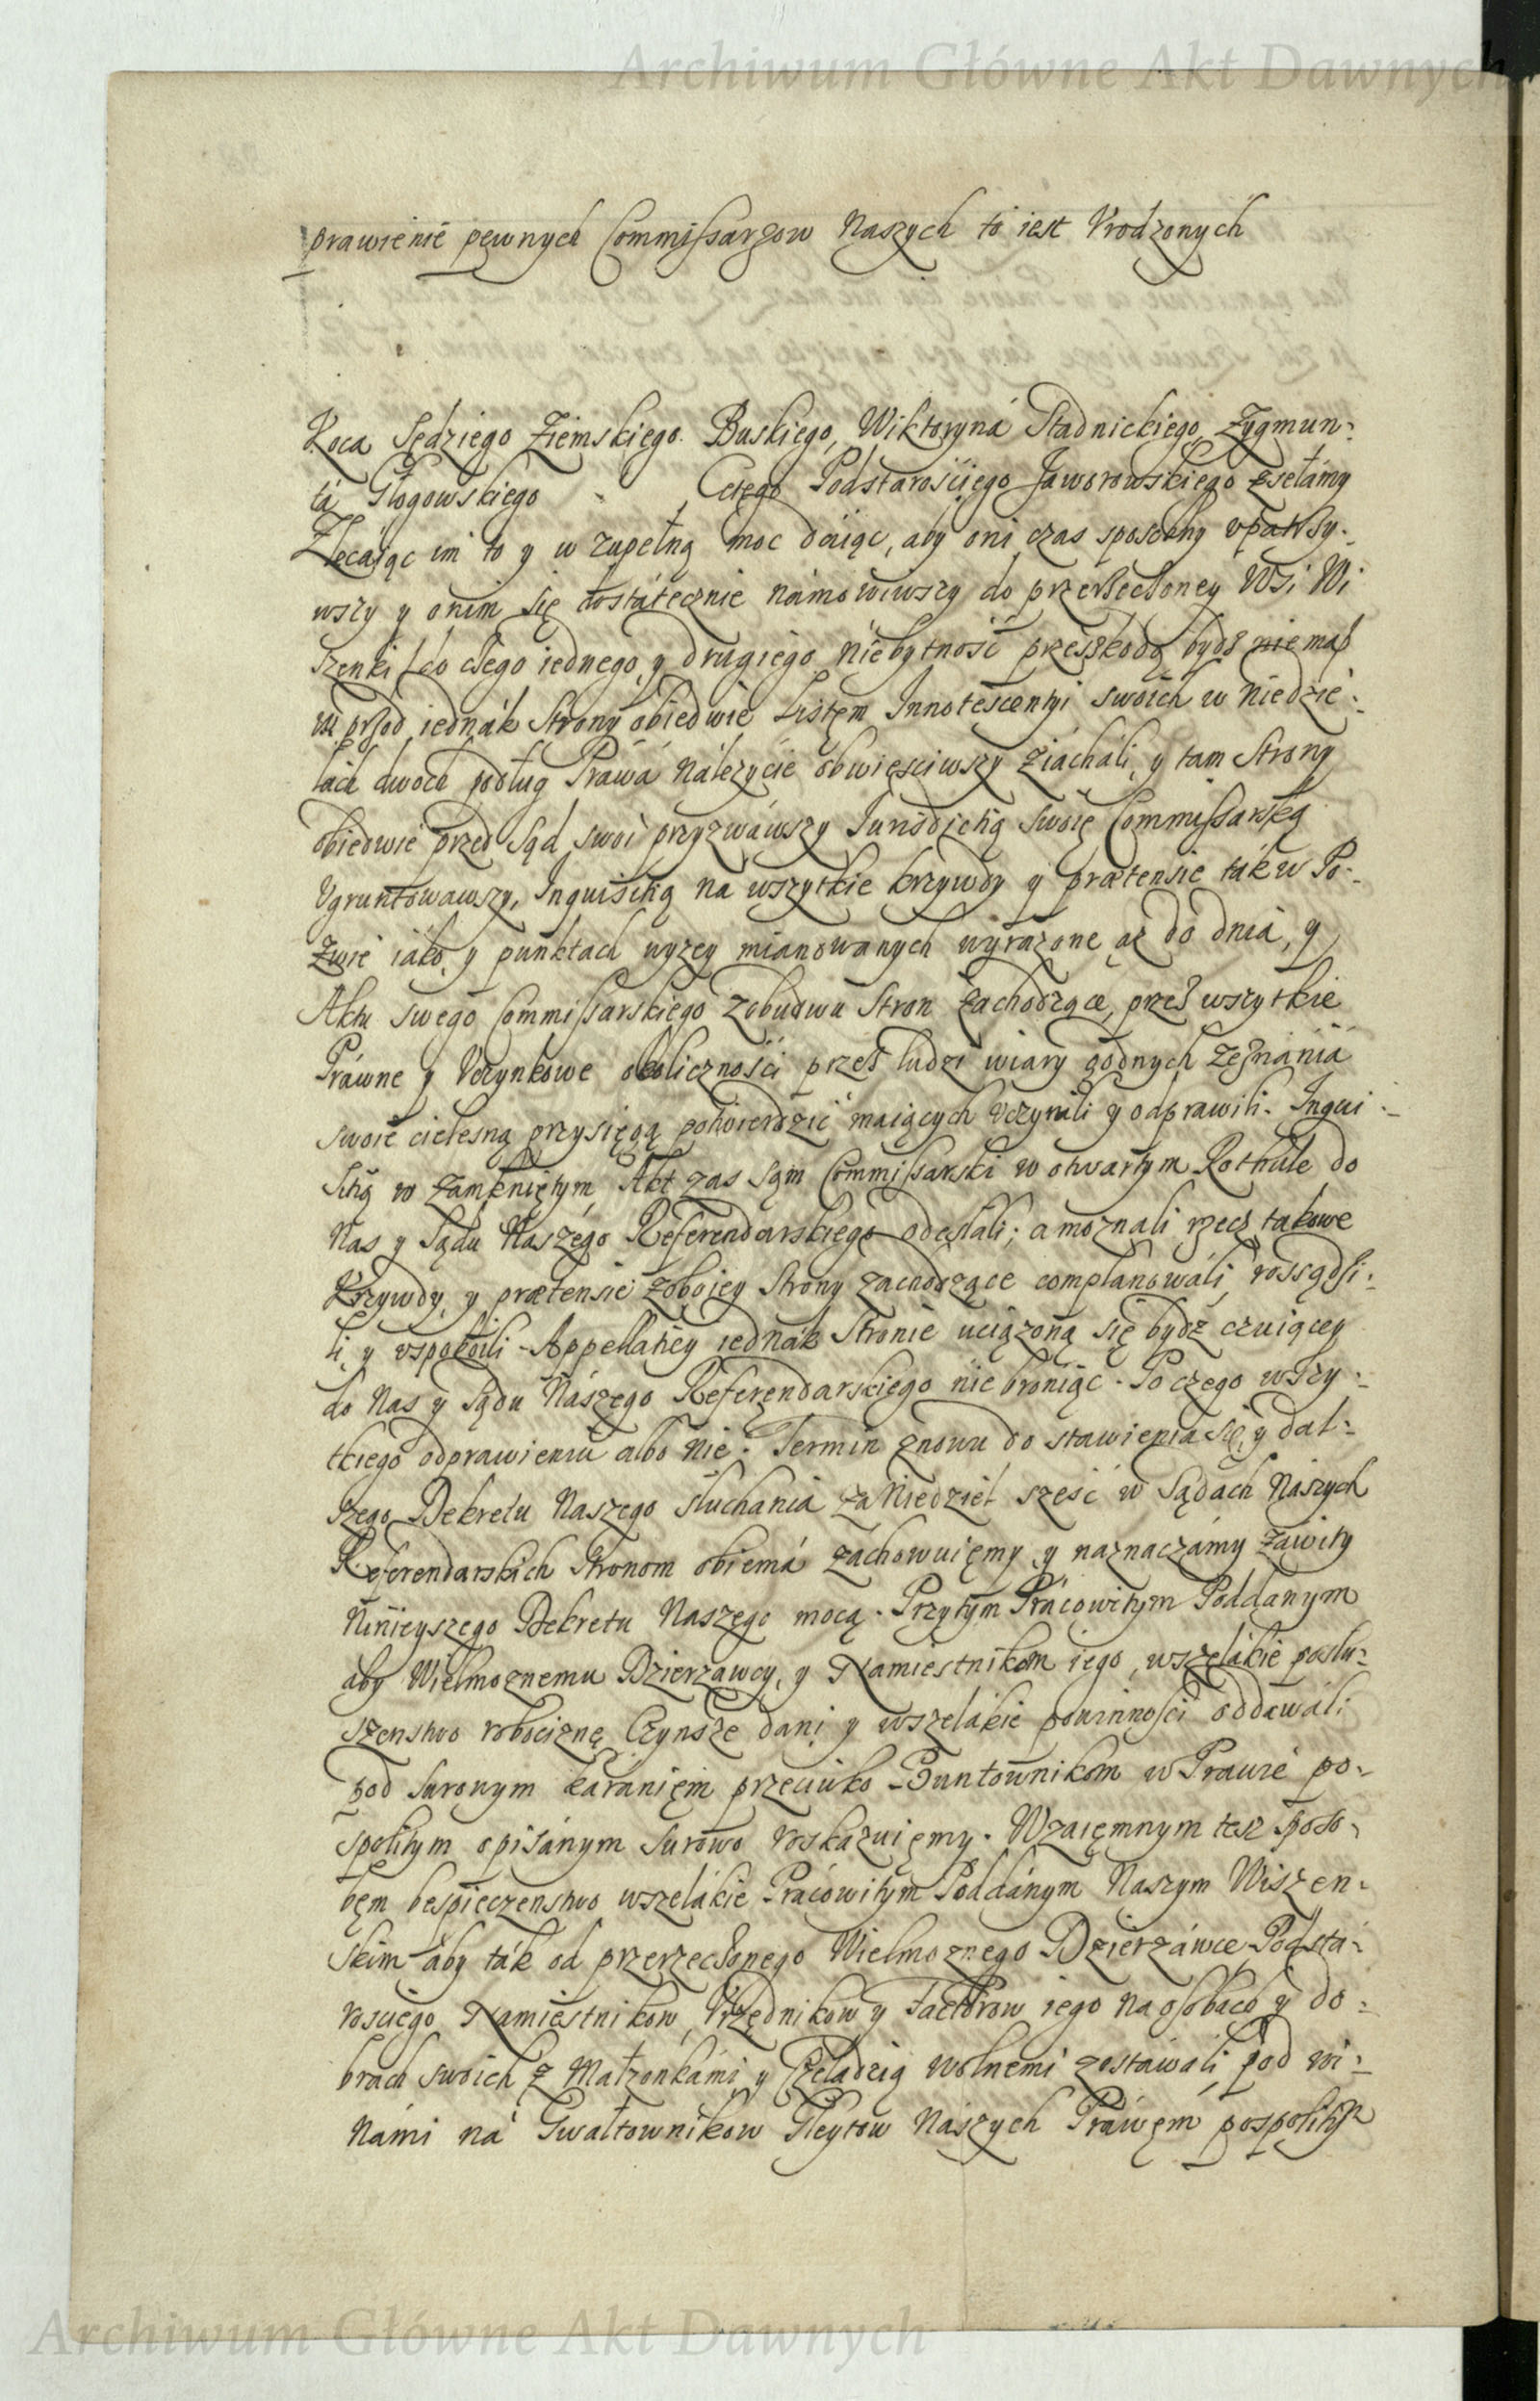 Archiwum Główne Akt Dawnych
prawienie pewnych Commissarzow Naszych to iest Vrodzonych
Koca Sędziego Ziemskiego Buskiego, Wiktoryná Stadnickiego, Zygmun:
tá Głogowskiego Cetego Podstarościego Jaworowskiego zsełámy
Zlecaiąc im to y w zupełną moc daiąc, aby oni czas sposobny vpatrzy:
wszy y onim się dostátecznie námowiwszy do przerzeczoney Wsi Wi
szenki (do czego iednego y drugiego niebytność przeszkodą bydz nie ma)
w przod iednák Strony obiedwie Listem Innotescentyi swoich w niedzie:
lách dwoch podług Práwá nálezycie obwiesciwszy ziácháli, y tam Strony
obiedwie przed Sąd swoi przyzwáwszy Iurisdictią Swoię Commissarską
Vgruntowawszy, Inquisitią na wszytkie krzywdy y prætensie ták w Po:
zwie iáko y punktach wyzey mianowanych wyrazone az do dnia, y
Aktu swego Commissarskiego zobudwu Stron zachodzące, przez wszytkie
Práwne y Vczynkowe okoliczności przez ludzi wiary godnych zeznánia
swoie cielesną przysięgą potwierdzić maiących vczynili y odprawili. Inqui:
sitią w zamkniętym, Akt zas sąm Commissarski w otwartym Rothule do
Nas y Sądu Naszego Referendarskiego odesłali; a moznali rzecz takowe
Krzywdy, y prætensie zoboiey Strony zachodzące complanowáli, rossądzi:
li, y vspokoili. Appellatiey iednák Stronie uciązoną się bydz czuiącey
do Nas y Sądu Nászego Referendarskiego niebroniąc. Po czego wszy:
tkiego odprawieniu albo nie. Termin znowu do stawienia się, y dal:
szego Dekretu Naszego słuchania za Niedziel sześć w Sądach Nászych
Referendarskich Stronom obiemá záchowuięmy, y naznaczámy záwity
Ninieyszego Dekretu Naszego mocą. Przytym Prácowitym Poddanym
aby Wielmoznemu Dzierzawcy, y Namiestnikom iego, wszelákie poslu:
szenstwo robociznę Czynsze dani y wszelákie powinności oddawáli
pod surowym karánięm przeciwko Buntownikom w Prawie po:
spolitym opisánym surowo roskazuięmy. Wzaięmnym tesz sposo:
bęm bespieczenstwo wszelákie Prácowitym Poddánym Naszym Wiszen:
skim aby ták od przerzeczonego Wielmoznego Dzierzáwce Podstá:
rosciego Namiestnikow, Vrzędnikow y Factorow iego na osobách y do:
brách swoich z Małzonkámi y Czeladzią wolnemi zostáwali, pod wi:
námi ná Gwałtownikow Gleytow Nászych Práwęm pospolitym
Archiwum Główne Akt Dawnych